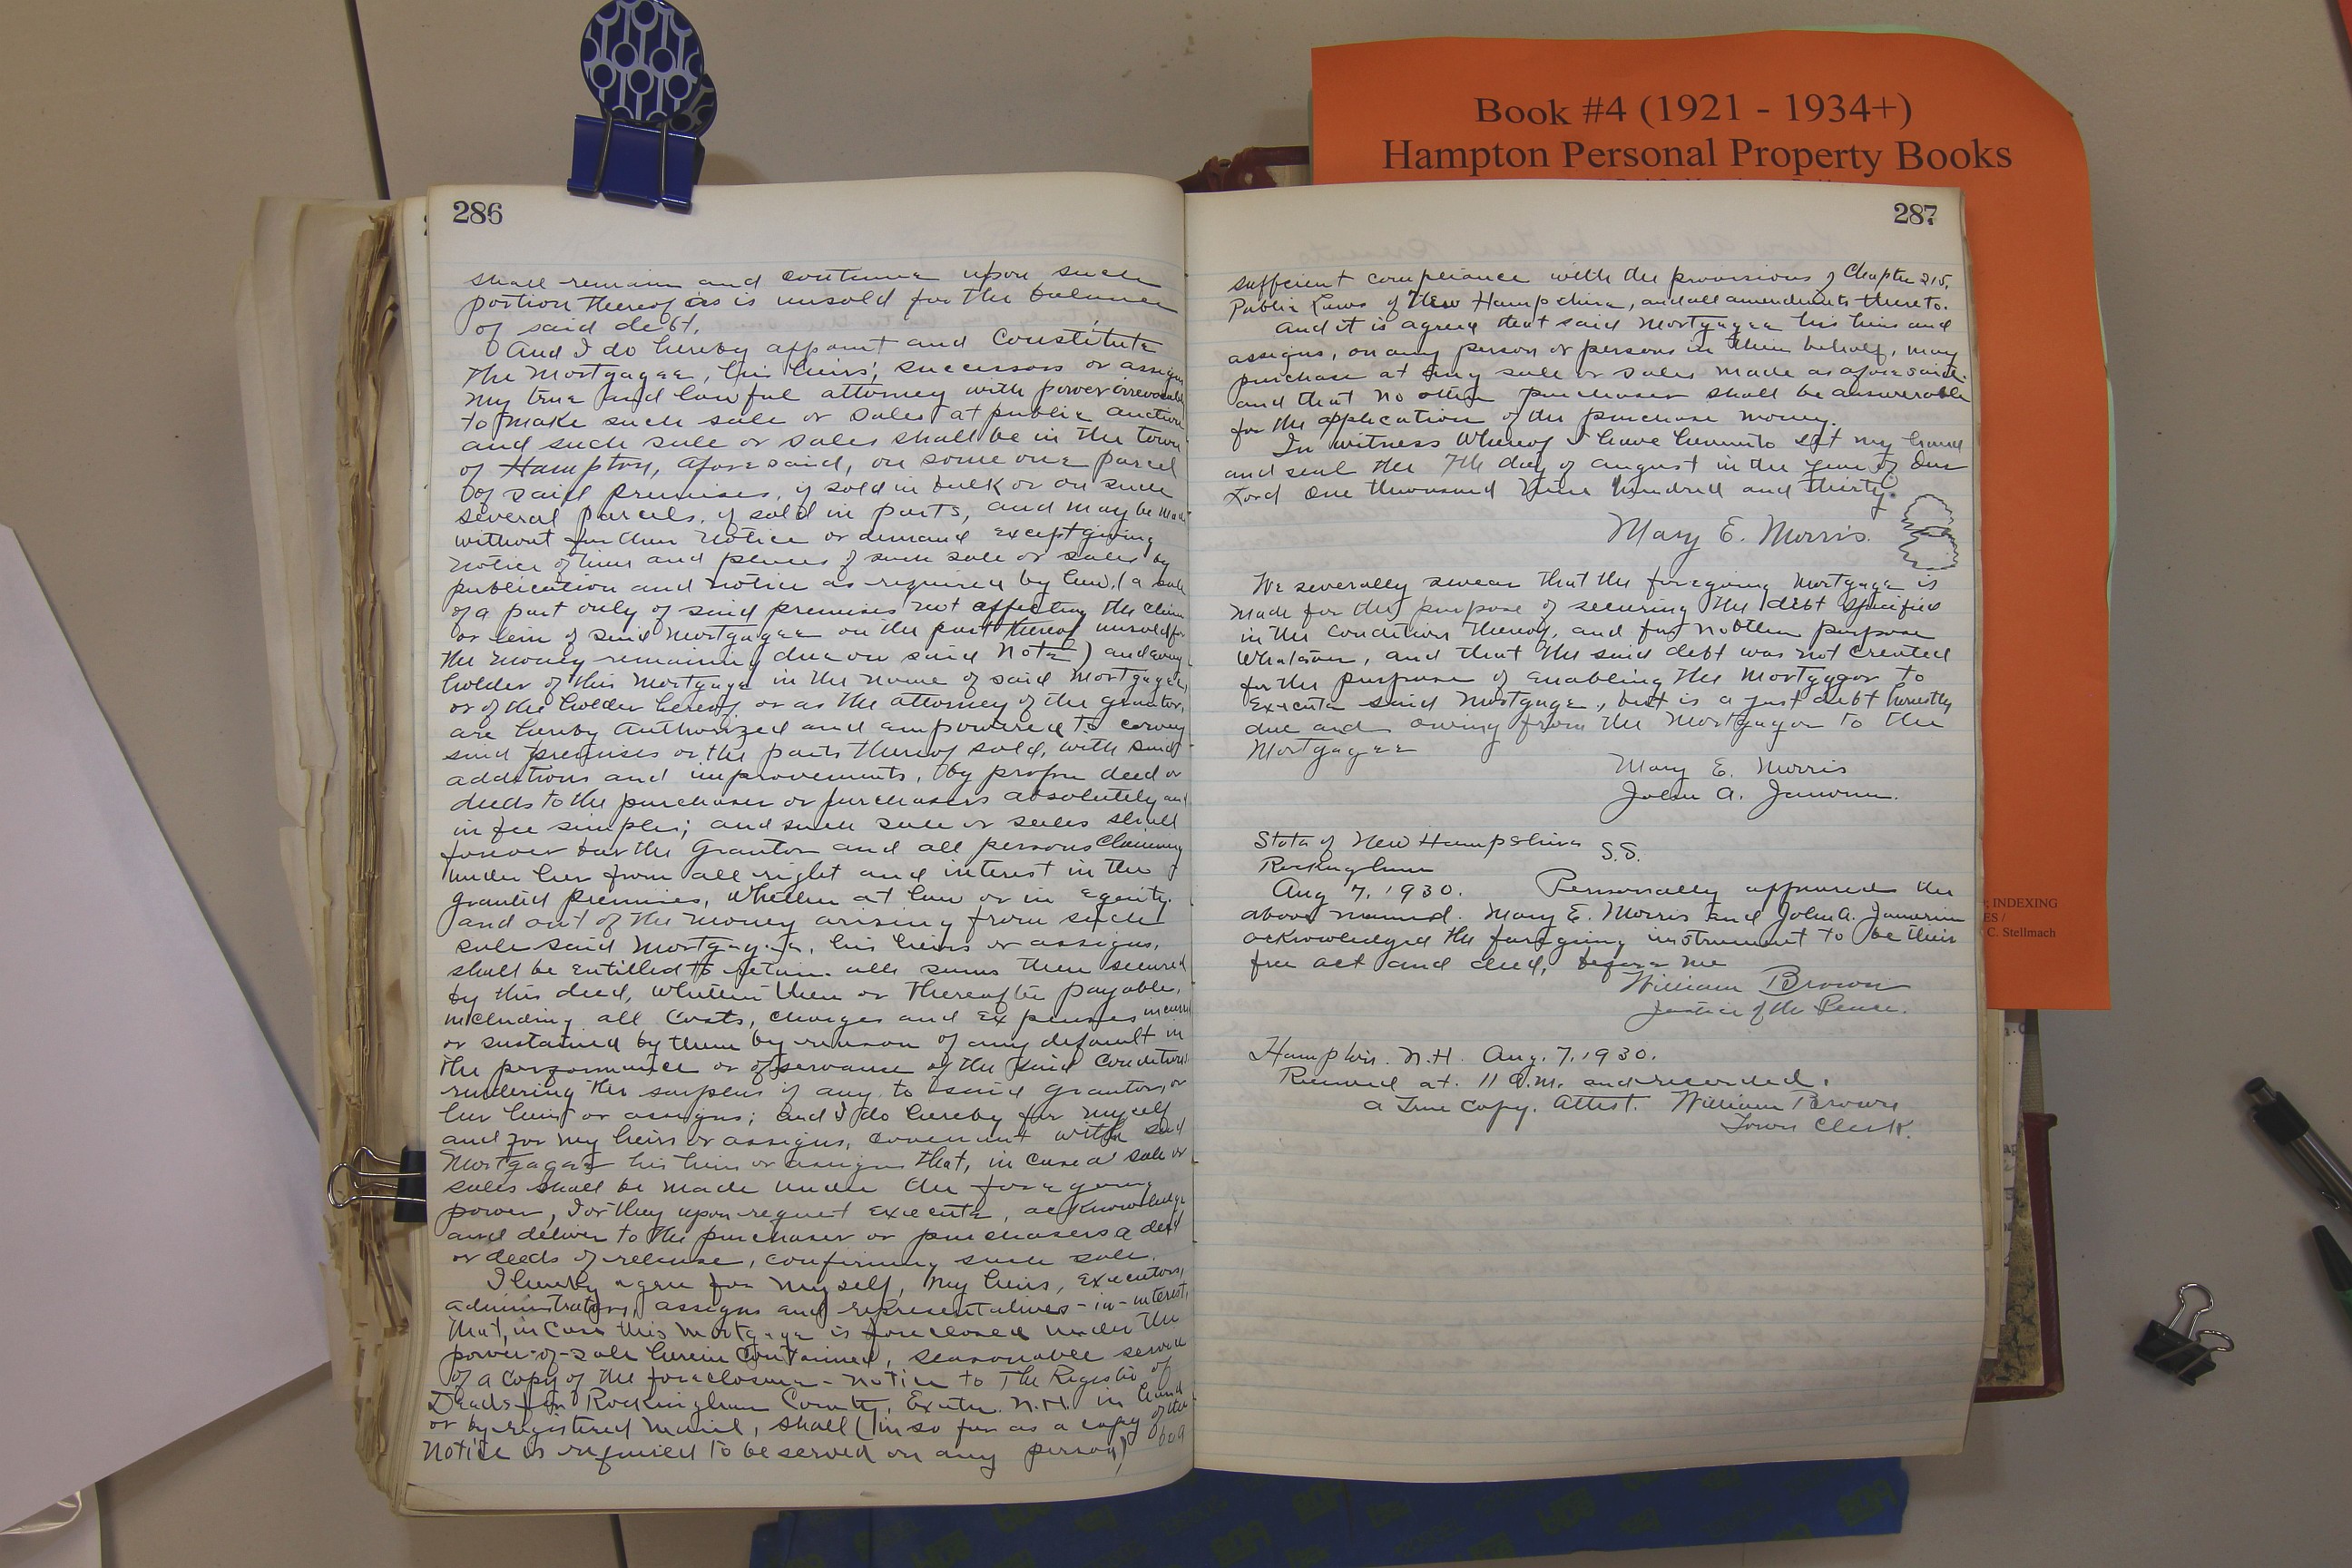 Book #4 (1921 - 1934+)
Hampton Personal Property Books
INDEXING
ES /
C. Stellmach
286
shall remain and continue upon such
portion thereof as is unsold for the balance
of said debt.
And I do hereby appoint and Constitute
the Mortgagee, his heirs, successors or assigns
my true and lawful attorney with power irrevocable
to make such sale or sales at public auction
and such sale or sales shall be in the town
of Hampton, aforesaid, on some one parcel
of said premises, if sold in bulk or on such
several parcels, if sold in parts, and may be made
without further notice or demand except giving
notice of time and places of such sale or sales by
publication and notice as required by law, (a sale
of a part only of said premises not affecting the claim
or lein of said Mortgagee on the part thereof unsold for
the money remaining due on said Note) and any
holder of this Mortgage in the name of said Mortgagee,
or of the holder hereof or as the attorney of the grantor,
are hereby Authorized and empowered to convey
said premises or the parts thereof sold, with said
additions and improvements, by proper deed or
deeds to the purchaser or purchasers absolutely and
in fee simple; and such sale or sales shall
forever bar the Grantor and all persons Claiming
under her from all right and interest in the
granted premises, Whether at law or in Equity.
and out of the money arising from such
sale said Mortgagee, his heirs or assigns,
shall be entitled to retain all sums then secured
by this deed, whether then or thereafter payable,
including all Costs, charges and Expenses incurred
or sustained by them by reason of any default in
the performance or observance of the said Condition
rendering the surplus if any to said grantor, or
her heirs or assigns; and I do hereby for myself
and for my heirs or assigns, covenant with said
Mortgagee his heirs or assigns that, in case a sale or
sales shall be made under the foregoing
power, I or they upon request execute, acknowledge
and deliver to the purchaser or purchasers a deed
or deeds of release, confirming such sale.
I hereby agree for myself, my heirs, Executors,
administrators, assigns and representatives-in-interest,
that, in case this mortgage is foreclosed under the
power-of-sale herein Contained, seasonable service
of a copy of the foreclosure-notice to The Register of
Deeds for Rockingham County, Exeter N.H. in hand
or by registered mail, shall (in so far as a copy of the
notice is required to be served on any person) be a
287
sufficient compliance with the provisions of Chapter 215,
Public Laws of New Hampshire, and all amendments thereto.
And it is agreed that said Mortgagee his heirs and
assigns, or any person or persons in their behalf, may
purchase at any sale or sales made as aforesaid.
and that no other purchaser shall be answerable
for the application of the purchase money.
In witness Whereof I have hereunto set my hand
and seal the 7th day of august in the year of Our
Lord One thousand Nine hundred and thirty.
Mary E. Morris.
We severally swear that the foregoing Mortgage is
made for the purpose of securing the debt specified
in the Condition thereof, and for no other purpose
Whatsoever, and that the said debt was not created
for the purpose of enabling the Mortgagor to
Execute said Mortgage, but is a just debt honestly
due and owing from the Mortgagor to the
Mortgagee
Mary E. Morris
John A. Janvrin.
State of New Hampshire
S.S.
Rockingham
Aug 7, 1930. Personally appeared the
above named. Mary E. Morris and John A. Janvrin
acknowledged the foregoing instrument to be their
free act and deed, before me
William Brown
Justice of the Peace.
Hampton. N.H. Aug. 7, 1930.
Received at 11 A.M. and recorded.
a True Copy. Attest. William Brown
Town Clerk.